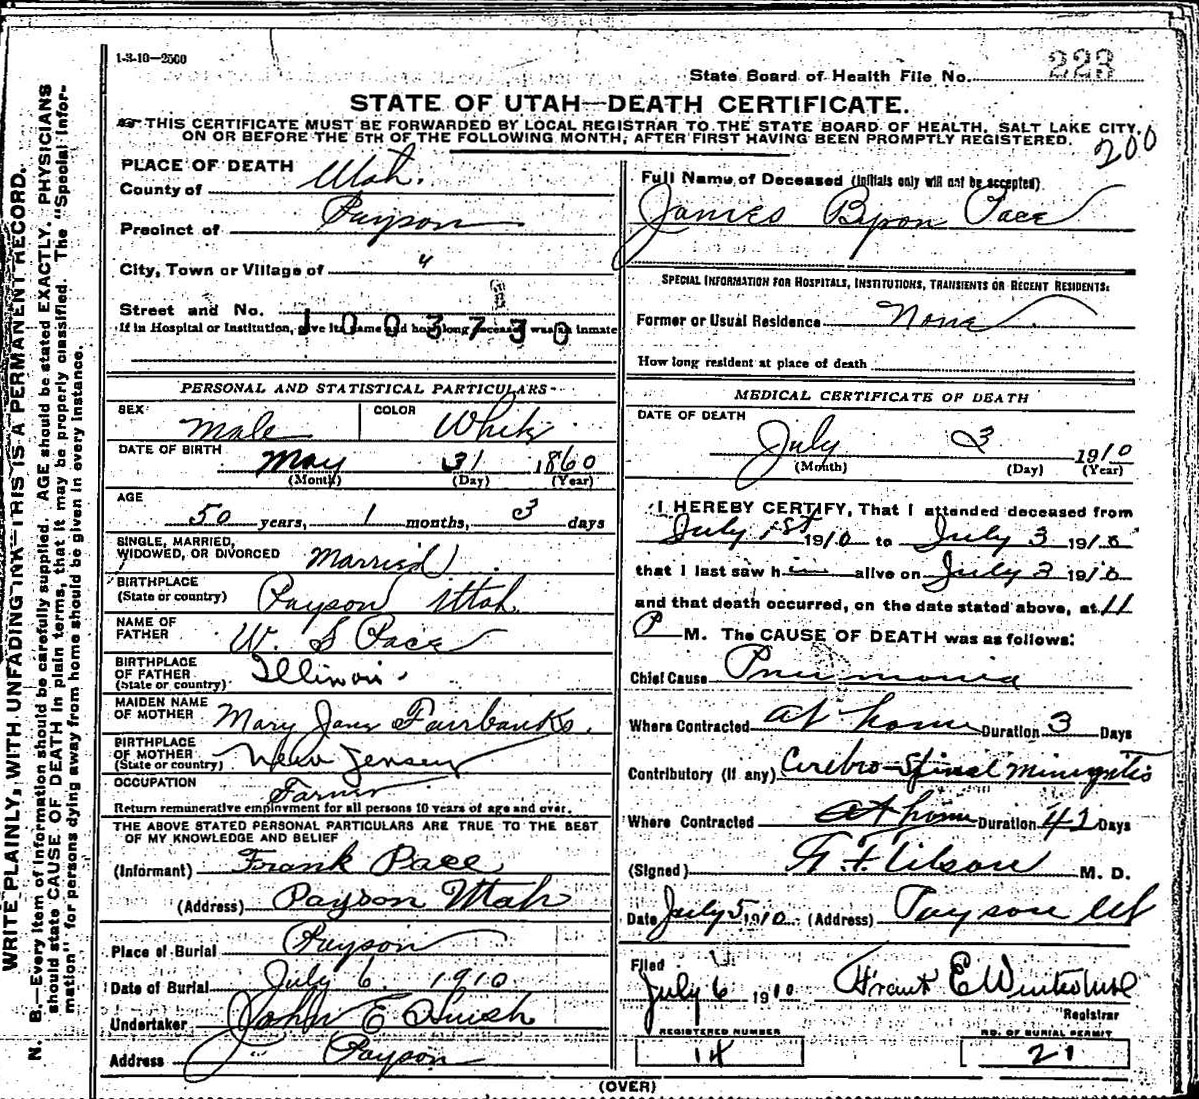 1-3-10—2500
State Board of Health File No. 223
STATE OF UTAH—DEATH CERTIFICATE.
THIS CERTIFICATE MUST BE FORWARDED BY LOCAL REGISTRAR TO THE STATE BOARD OF HEALTH, SALT LAKE CITY,
ON OR BEFORE THE 5TH OF THE FOLLOWING MONTH, AFTER FIRST HAVING BEEN PROMPTLY REGISTERED.
200
WRITE PLAINLY, WITH UNFADING INK—THIS IS A PERMANENT RECORD.
N. B.—Every item of information should be carefully supplied. AGE should be stated EXACTLY. PHYSICIANS
should state CAUSE OF DEATH in plain terms, that it may be properly classified. The "Special Infor-
mation" for persons dying away from home should be given in every instance.
PLACE OF DEATH
County of Utah.
Precinct of Payson
City, Town or Village of "
Street and No.
If in Hospital or Institution, give its name and how long deceased was an inmate
1003730
PERSONAL AND STATISTICAL PARTICULARS
SEX Male COLOR White
DATE OF BIRTH May 31 1860
(Month) (Day) (Year)
AGE
50 years, 1 months, 3 days
SINGLE, MARRIED,
WIDOWED, OR DIVORCED Married
BIRTHPLACE
(State or country) Payson Utah
NAME OF
FATHER W. S Pace
BIRTHPLACE
OF FATHER
(State or country) Illinois.
MAIDEN NAME
OF MOTHER Mary Jane Fairbanks.
BIRTHPLACE
OF MOTHER
(State or country) New Jersey
OCCUPATION Farmer
Return remunerative employment for all persons 10 years of age and over.
THE ABOVE STATED PERSONAL PARTICULARS ARE TRUE TO THE BEST
OF MY KNOWLEDGE AND BELIEF
(Informant) Frank Pace
(Address) Payson Utah
Place of Burial Payson
Date of Burial July 6. 1910
Undertaker John E Huish
Address " Payson
Full Name of Deceased (Initials only will not be accepted)
James Byron Pace
SPECIAL INFORMATION FOR HOSPITALS, INSTITUTIONS, TRANSIENTS OR RECENT RESIDENTS:
Former or Usual Residence None
How long resident at place of death
MEDICAL CERTIFICATE OF DEATH
DATE OF DEATH
July 3 1910
(Month) (Day) (Year)
I HEREBY CERTIFY, That I attended deceased from
July 1st 1910 to July 3 1910
that I last saw him alive on July 3 1910
and that death occurred, on the date stated above, at 11
P M. The CAUSE OF DEATH was as follows:
Chief Cause Pneumonia
Where Contracted at home Duration 3 Days
Contributory (if any) Cerebro-Spinal Miningitis
Where Contracted at home Duration 41 Days
(Signed) Tilson M. D.
Date July 5 1910 (Address) Payson Ut
Filed
July 6 1910 Frank E
Registrar
REGISTERED NUMBER NO. OF BURIAL PERMIT
14 21
(OVER)